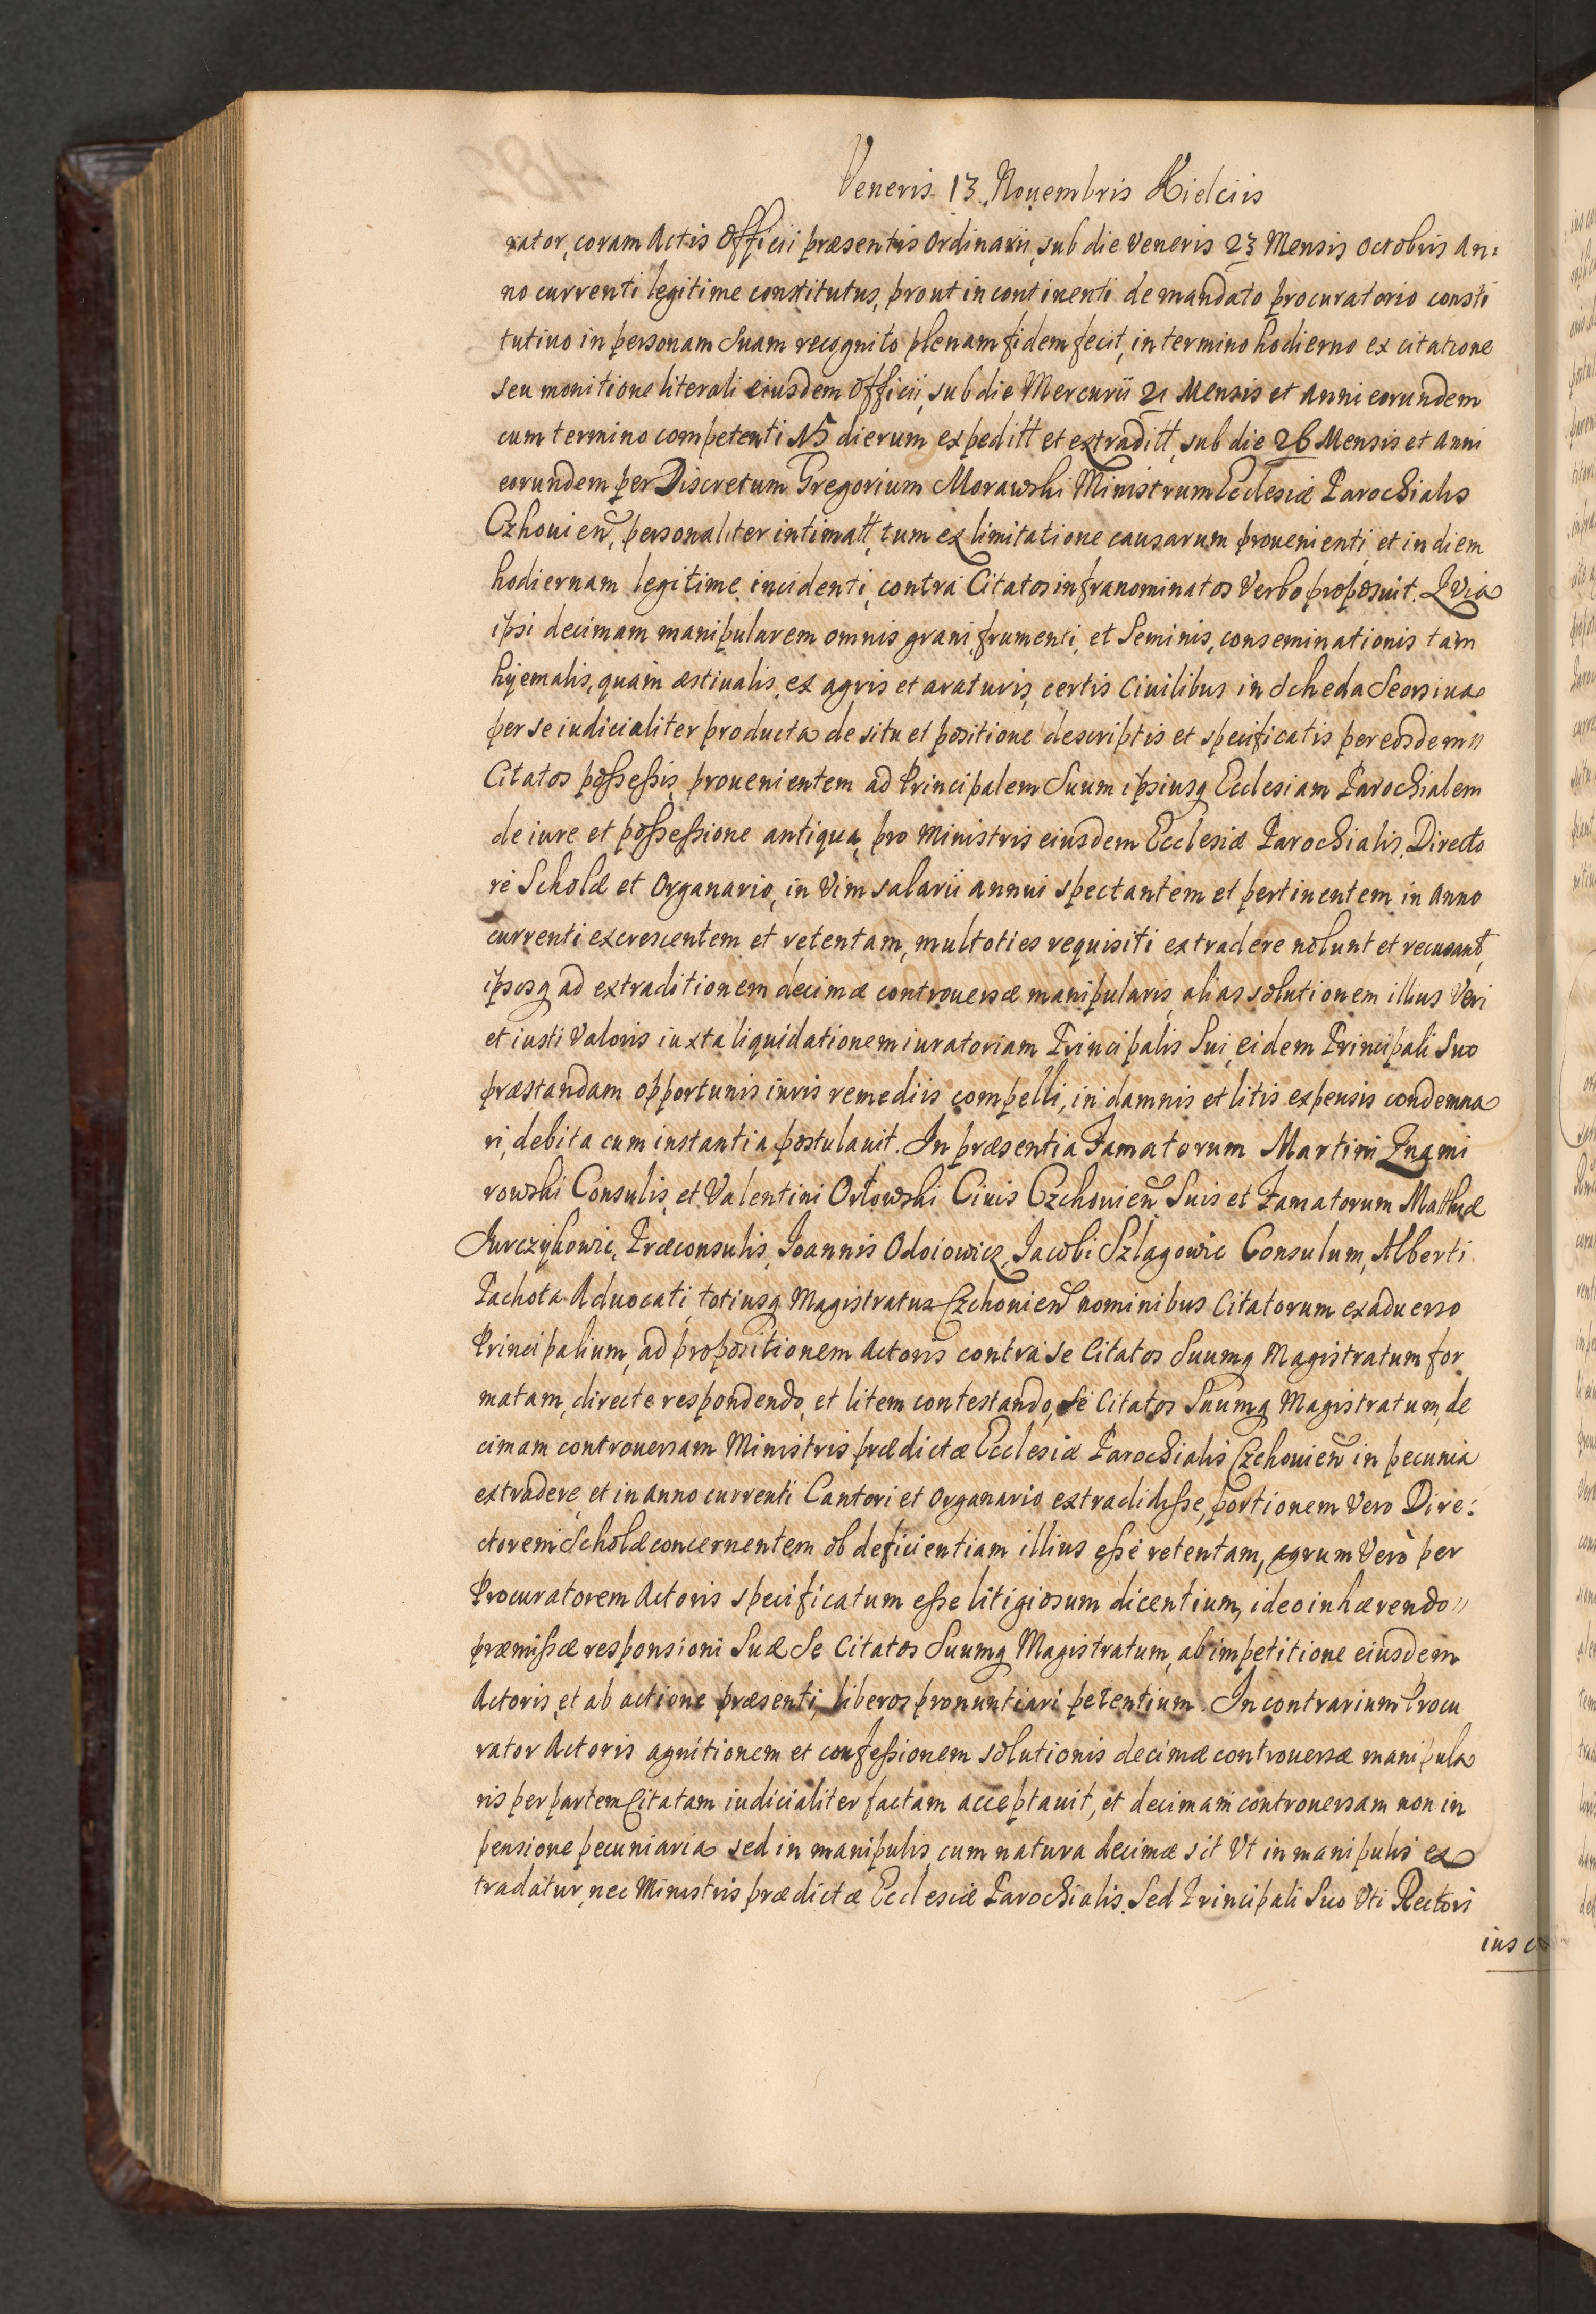 Veneris 13 Nouembris Kielciis
rator, coram Actis Officii præsentis Ordinarii, sub die Veneris 23 Mensis Octobris An:
no currenti legitime constitutus, prout in continenti de mandato procuratorio consti
tutiuo in personam Suam recognito plenam fidem fecit, in termino hodierno ex citatione
seu monitione literali eiusdem Officii, sub die Mercurii 21 Mensis et Anni eorundem
cum termino competenti 15 dierum expeditt et extraditt, sub die 26 Mensis et Anni
eorundem per Discretum Gregorium Morawski Ministrum Ecclesiæ Parochialis
Czhouien, personaliter intimatt, tum ex limitatione causarum prouenienti, et in diem
hodiernam legitime incidenti, contra Citatos infranominatos Verbo proposuit. Quia
ipsi decimam manipularem omnis grani, frumenti, et Seminis, conseminationis tam
hyemalis, quam æstiualis, ex agris et araturis, certis Ciuilibus in Scheda Seorsiua
per se iudicialiter producta de situ et positione descriptis et specificatis per eosdem
Citatos possessis, prouenientem ad Principalem Suum ipsiusq Ecclesiam Parochialem
de iure et possessione antiqua, pro Ministris eiusdem Ecclesiæ Parochialis, Directo
re Scholæ et Organario, in Vim salarii annui spectantem et pertinentem in Anno
currenti excrescentem et retentam, multoties requisiti extradere nolunt et recusant,
ipsosq ad extraditionem decimæ controuersæ manipularis, alias solutionem illius Veri
et iusti Valoris iuxta liquidationem iuratoriam Principalis Sui, eidem Principali Suo
præstandam opportunis iuris remediis compelli, in damnis et litis expensis condemna
ri, debita cum instantia postulauit. In præsentia Famatorum Martini Znami
rowski Consulis, et Valentini Orłowski Ciuis Czchouien Suis et Famatorum Matthiæ
Jurczykowic, Præconsulis, Joannis Odoiowicz, Jacobi Szlagowic Consulum, Alberti
Pachota Aduocati, totiusq Magistratus Czchouien nominibus Citatorum exaduerso
Principalium, ad propositionem Actoris contra se Citatos Suumq Magistratum for
matam, directe respondendo, et litem contestando, Se Citatos Suumq Magistratum, de
cimam controuersam Ministris prædictæ Ecclesiæ Parochialis Czchouien in pecunia
extradere, et in Anno currenti Cantori et Organario extradidisse, portionem Vero Dire:
ctorem Scholæ concernentem ob deficientiam illius esse retentam, agrum Vero per
Procuratorem Actoris specificatum esse litigiosum dicentium, ideo inhærendo
præmissæ responsioni Suæ Se Citatos Suumq Magistratum, ab impetitione eiusdem
Actoris, et ab actione præsenti, liberos pronuntiari petentium. In contrarium Procu
rator Actoris agnitionem et confessionem solutionis decimæ controuersæ manipula
ris per partem Citatam iudicialiter factam acceptauit, et decimam controuersam non in
pensione pecuniaria sed in manipulis, cum natura decimæ sit Vt in manipulis ex
tradatur, nec Ministris prædictæ Ecclesiæ Parochialis, Sed Principali Suo Vti Rectori
ius